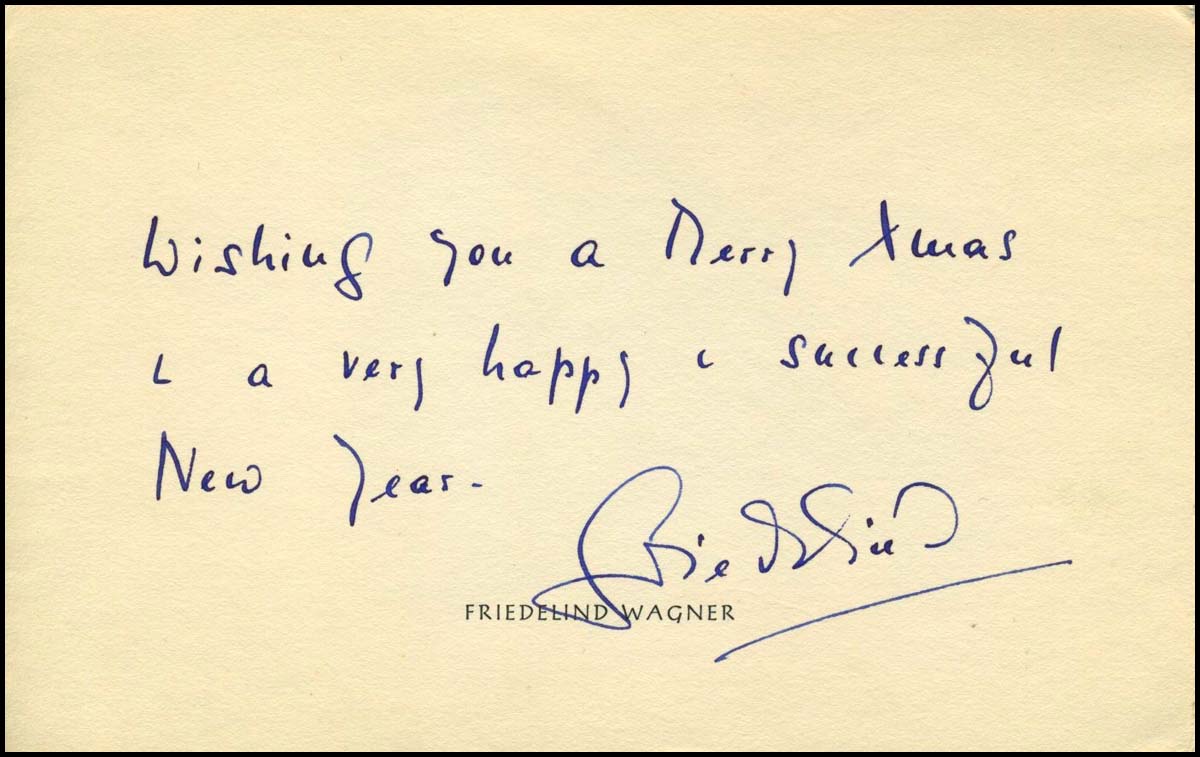 Wishing you a Merry Xmas
& a very happy & successful
New Year.
Friedelind
FRIEDELIND WAGNER